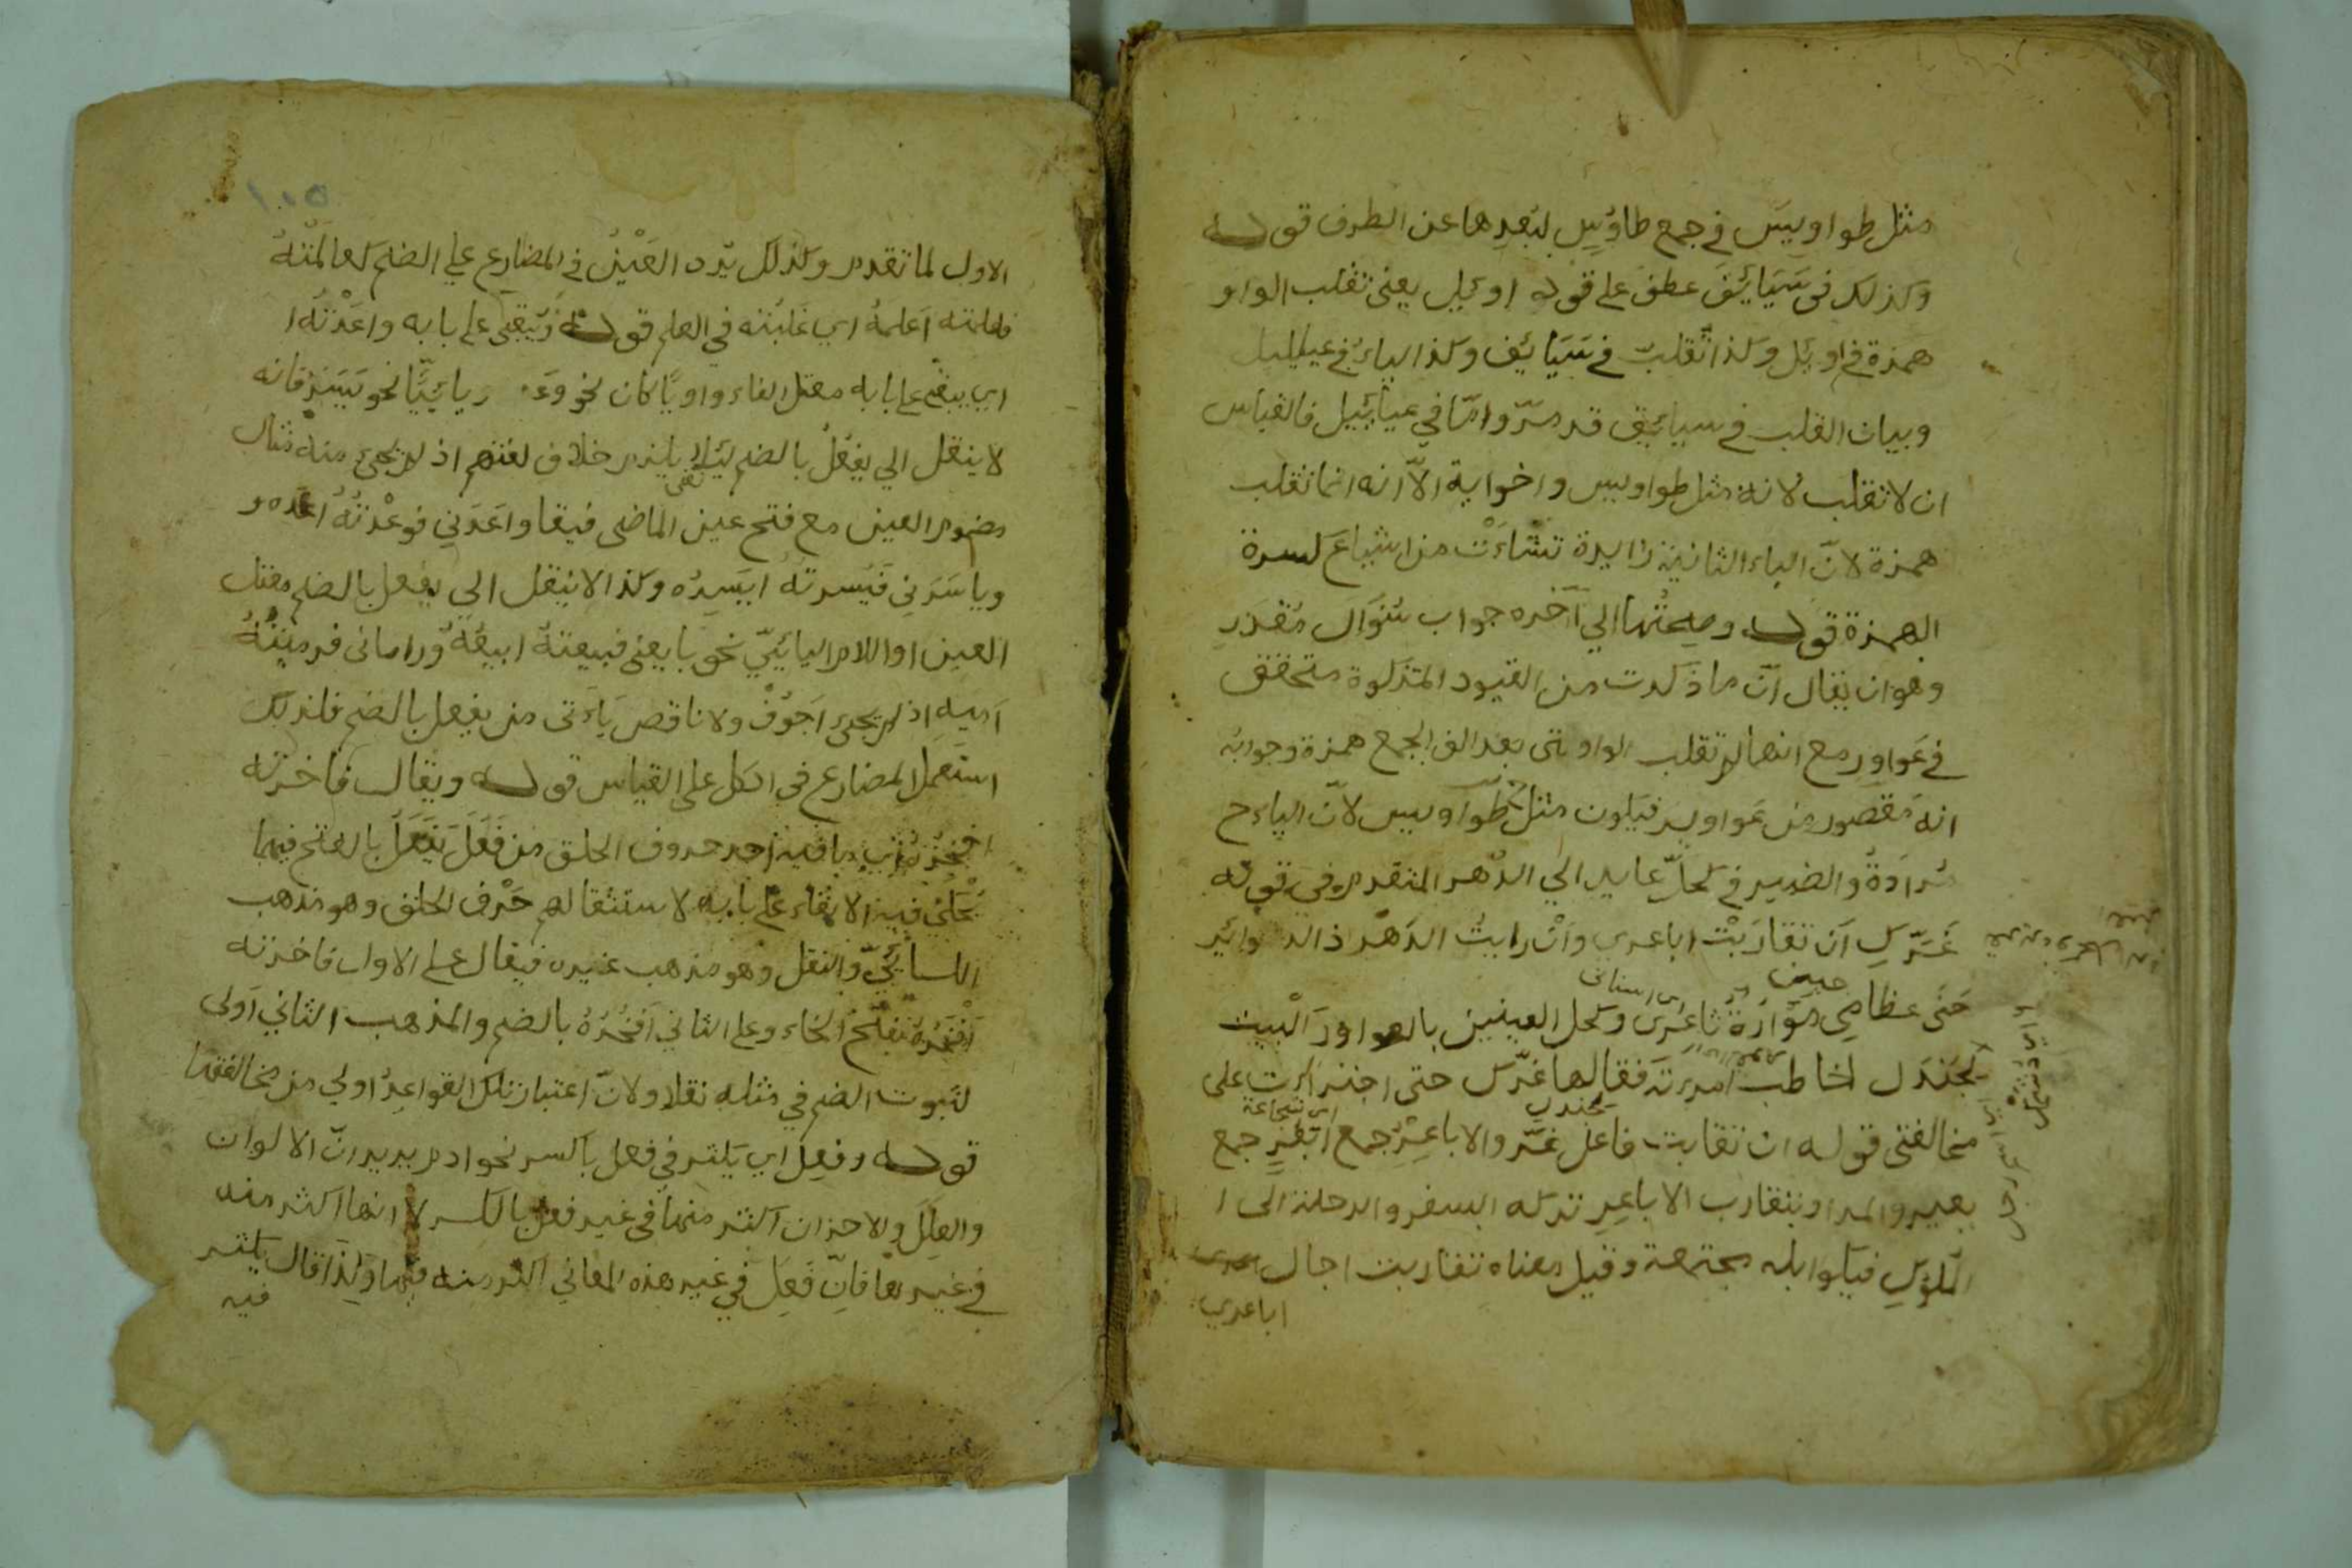 مثل طواويس في جمع طاوس لبعدها عن الطرف قوله
وكذلك في سَيَائِقَ عطف على قوله اوئل يعنى تقلب الواو
همزة في اوئل وكذا تقلب في سَيَائق وكذا الياء في عياييل
وبيان القلب في سيائق قد مرّ وامّا في عيائيل فالقياس
ان لا تقلب لانه مثل طواويس واخواته الّا انه انما تقلب
همزة لانّ الياء الثانية زايدة نشاءَتْ من اشباع كسرة
الهمزة قوله وصحتها الي آخره جواب سُؤال مقدر
وهو ان يقال انّ ما ذكرت من القيود المذكوة متحقق
في عَواوِر مع انها لم تقلب الواو التى بعد الف الجمع همزة وجوابه
انه مقصور من عواوير فيكون مثل طواويس لانّ الياء ح
مُرادَةٌ والضمير في كحلّ عايد الي الدّهر المتقدم في قوله
غَرّكِ اَن تقارَبَتْ اباعري وانْ رايتُ الدَهْرَ ذا الدوائِر
حَنَى عظامي
وكحل العينين بالعواور البيت
لجَندَل يخاطب امرءته فقال لها غرّكِ حتى اجترأت على
مخالفتى قوله ان تقاربت فاعل غَرّ والاباعِرُ جمع
جمع
بعير والمراد بتقارب الاباعِرِ تركه السفر والرحلة الى ا
الملوكِ فيكو ابله مجتمعة وقيل معناه تقاربت اجال
اباعري
١٠٥
الاول لما تقدم وكذلك يردّ العَيْنُ في المضارع على الضم كعالَمْتُهُ
فعلمته اَعلمهُ اي غلبْته في العلم قوله ويبقى على بابه واعَدْتُه ا
اي يبقى على بابه معتل الفاء واويًا كان نحو وَعَد او يائيًّا نحو يَسَرَ فانه
لا ينقل الي يفعُلُ بالضم ليُلا يلزم خلاف لغتهم اذ لم يجئ منه مثال
مضموم العين مع فتح عين الماضى فيقا واعَدَنِي فوعَدْتُهُ اعده و
وياسَرَنِي فيَسرتهُ ايسِرُه وكذا لا ينقل الي يفعل بالضم معتل
العين او اللام اليائيّ نحو بايعنى فبعتهُ ابيعُهُ وراماني فرميتُهُ
اَميهِ اذ لم يجئ اَجوَفُ ولا ناقص ياءى من يفعل بالضم فلذلك
استعمل المضارع في الكل على القياس قوله ويقال فاخرته
افخره اي ما فيه احد حروف الحلق من فَعَلَ يَفعَلَ بالفتح فيهما
يُحكى فيه الابقاء على بابه لاستثقالهم حَرْف الحلق وهو مذهب
الكسائيّ والنقل وهو مذهب غيره فيقال على الاول فاخرته
اَفخَرُهُ بفتح الخاء وعلى الثاني اَفخُرُهُ بالضم والمذهب الثاني اَولى
لثبوت الضم في مثله نقلا ولانّ اعتبار تلك القواعِدُ اولي من مخالفتها
قوله وفعِل اي يَكثر في فعل بالكسر نحو ادم يريد انّ الالوان
والعِلل والاحزان اكثر منها في غير فعل بالكسر لا انها اكثر منه
في غيرها فانّ فَعِل في غير هذه المعاني اكثر منه فيها ولِذا قال يكثر
فيه